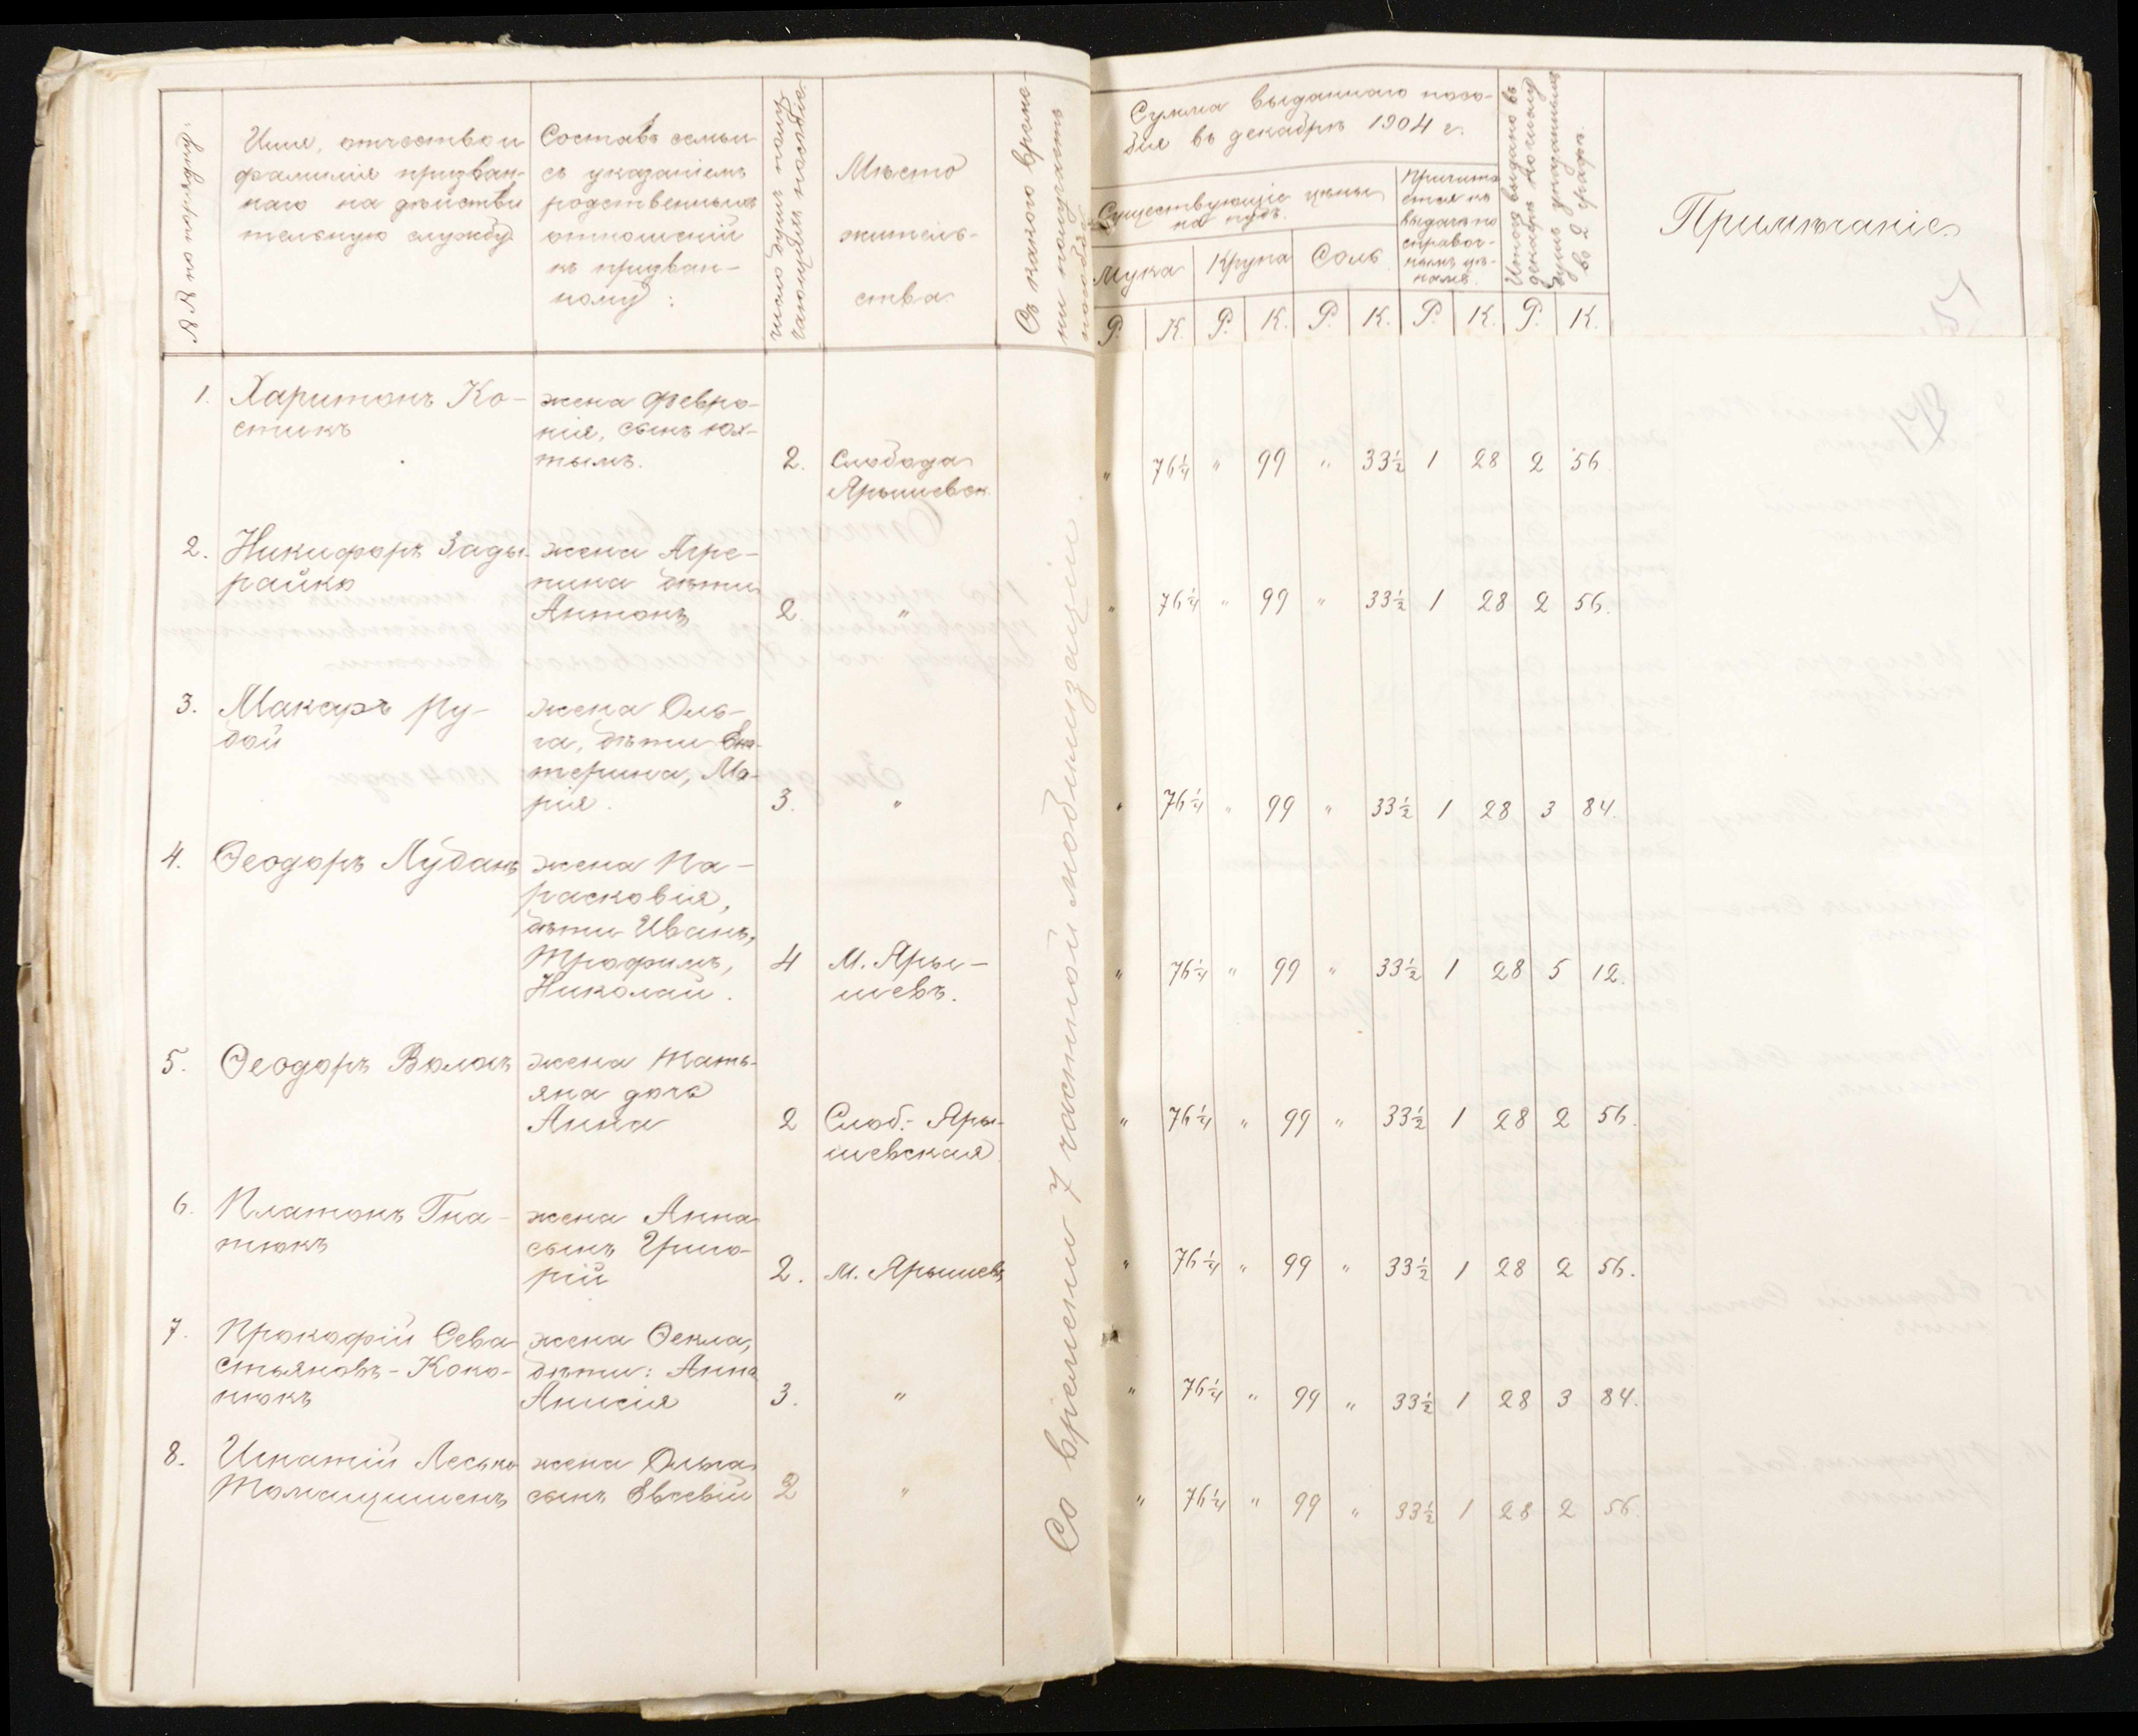 №№ по порядку.
Имя, отчество и
фамилія призван-
наго на дѣйстви
тельную службу
Составъ семьи
съ указаніемъ
родственныхъ
отношеній
къ призван-
ному:
число душъ полу-
чающихъ пособіе.
Мѣсто
житель-
ства
Съ какого време-
ни получаетъ
пособіе
Сумма выданнаго посо-
бія въ декабрѣ 1904 г.
Существующіе цѣны
на пудъ.
Мука Крупа Соль
Причита
ется къ
выдачѣ по
справоч-
нымъ цѣ-
намъ.
Итого выдано въ
декабрѣ
душъ указанныхъ
въ 2 графѣ.
Примѣчаніе
Р. К. Р. К. Р. К. Р. К. Р. К.
1. Харитонъ Ко-
стикъ
жена Февро-
нія, сынъ Юх-
тымъ.
2. Слобода
Ярышевск.
" 76¼ " 99 " 33½ 1 28 2 56.
2. Никифоръ Зады-
райко
жена Агре-
пина дѣти
Антонъ
2 "
" 76¼ " 99 " 33½ 1 28 2 56.
3. Макаръ Лу-
бой
жена Оль-
га, дѣти Ека-
терина, Ма-
рія.
3. "
" 76¼ " 99 " 33½ 1 28 3 84.
4. Ѳеодоръ Лубанъ
жена Па-
расковія,
дѣти Иванъ,
Трофимъ,
Николай.
4 М. Яры-
шевъ.
" 76¼ " 99 " 33½ 1 28 5 12.
5. Ѳеодоръ Волохъ
жена Тать-
яна дочь
Анна
2 Слоб.- Яры-
шевская
" 76¼ " 99 " 33½ 1 28 2 56.
6. Платонъ Гна-
тюкъ
жена Анна
сынъ Григо-
рій
2. М. Ярышевъ
" 76¼ " 99 " 33½ 1 28 2 56.
7. Прокофій Сева-
стьяновъ-Коно-
нюкъ
жена Ѳекла,
дѣти: Анна
Анисія
3. "
" 76¼ " 99 " 33½ 1 28 3 84.
8. Игнатій Лесько
Томащишенъ
жена Ольга
сынъ Евсевій
2 "
" 76¼ " 99 " 33½ 1 28 2 56.
Со времени 7 частной мобилизаціи.